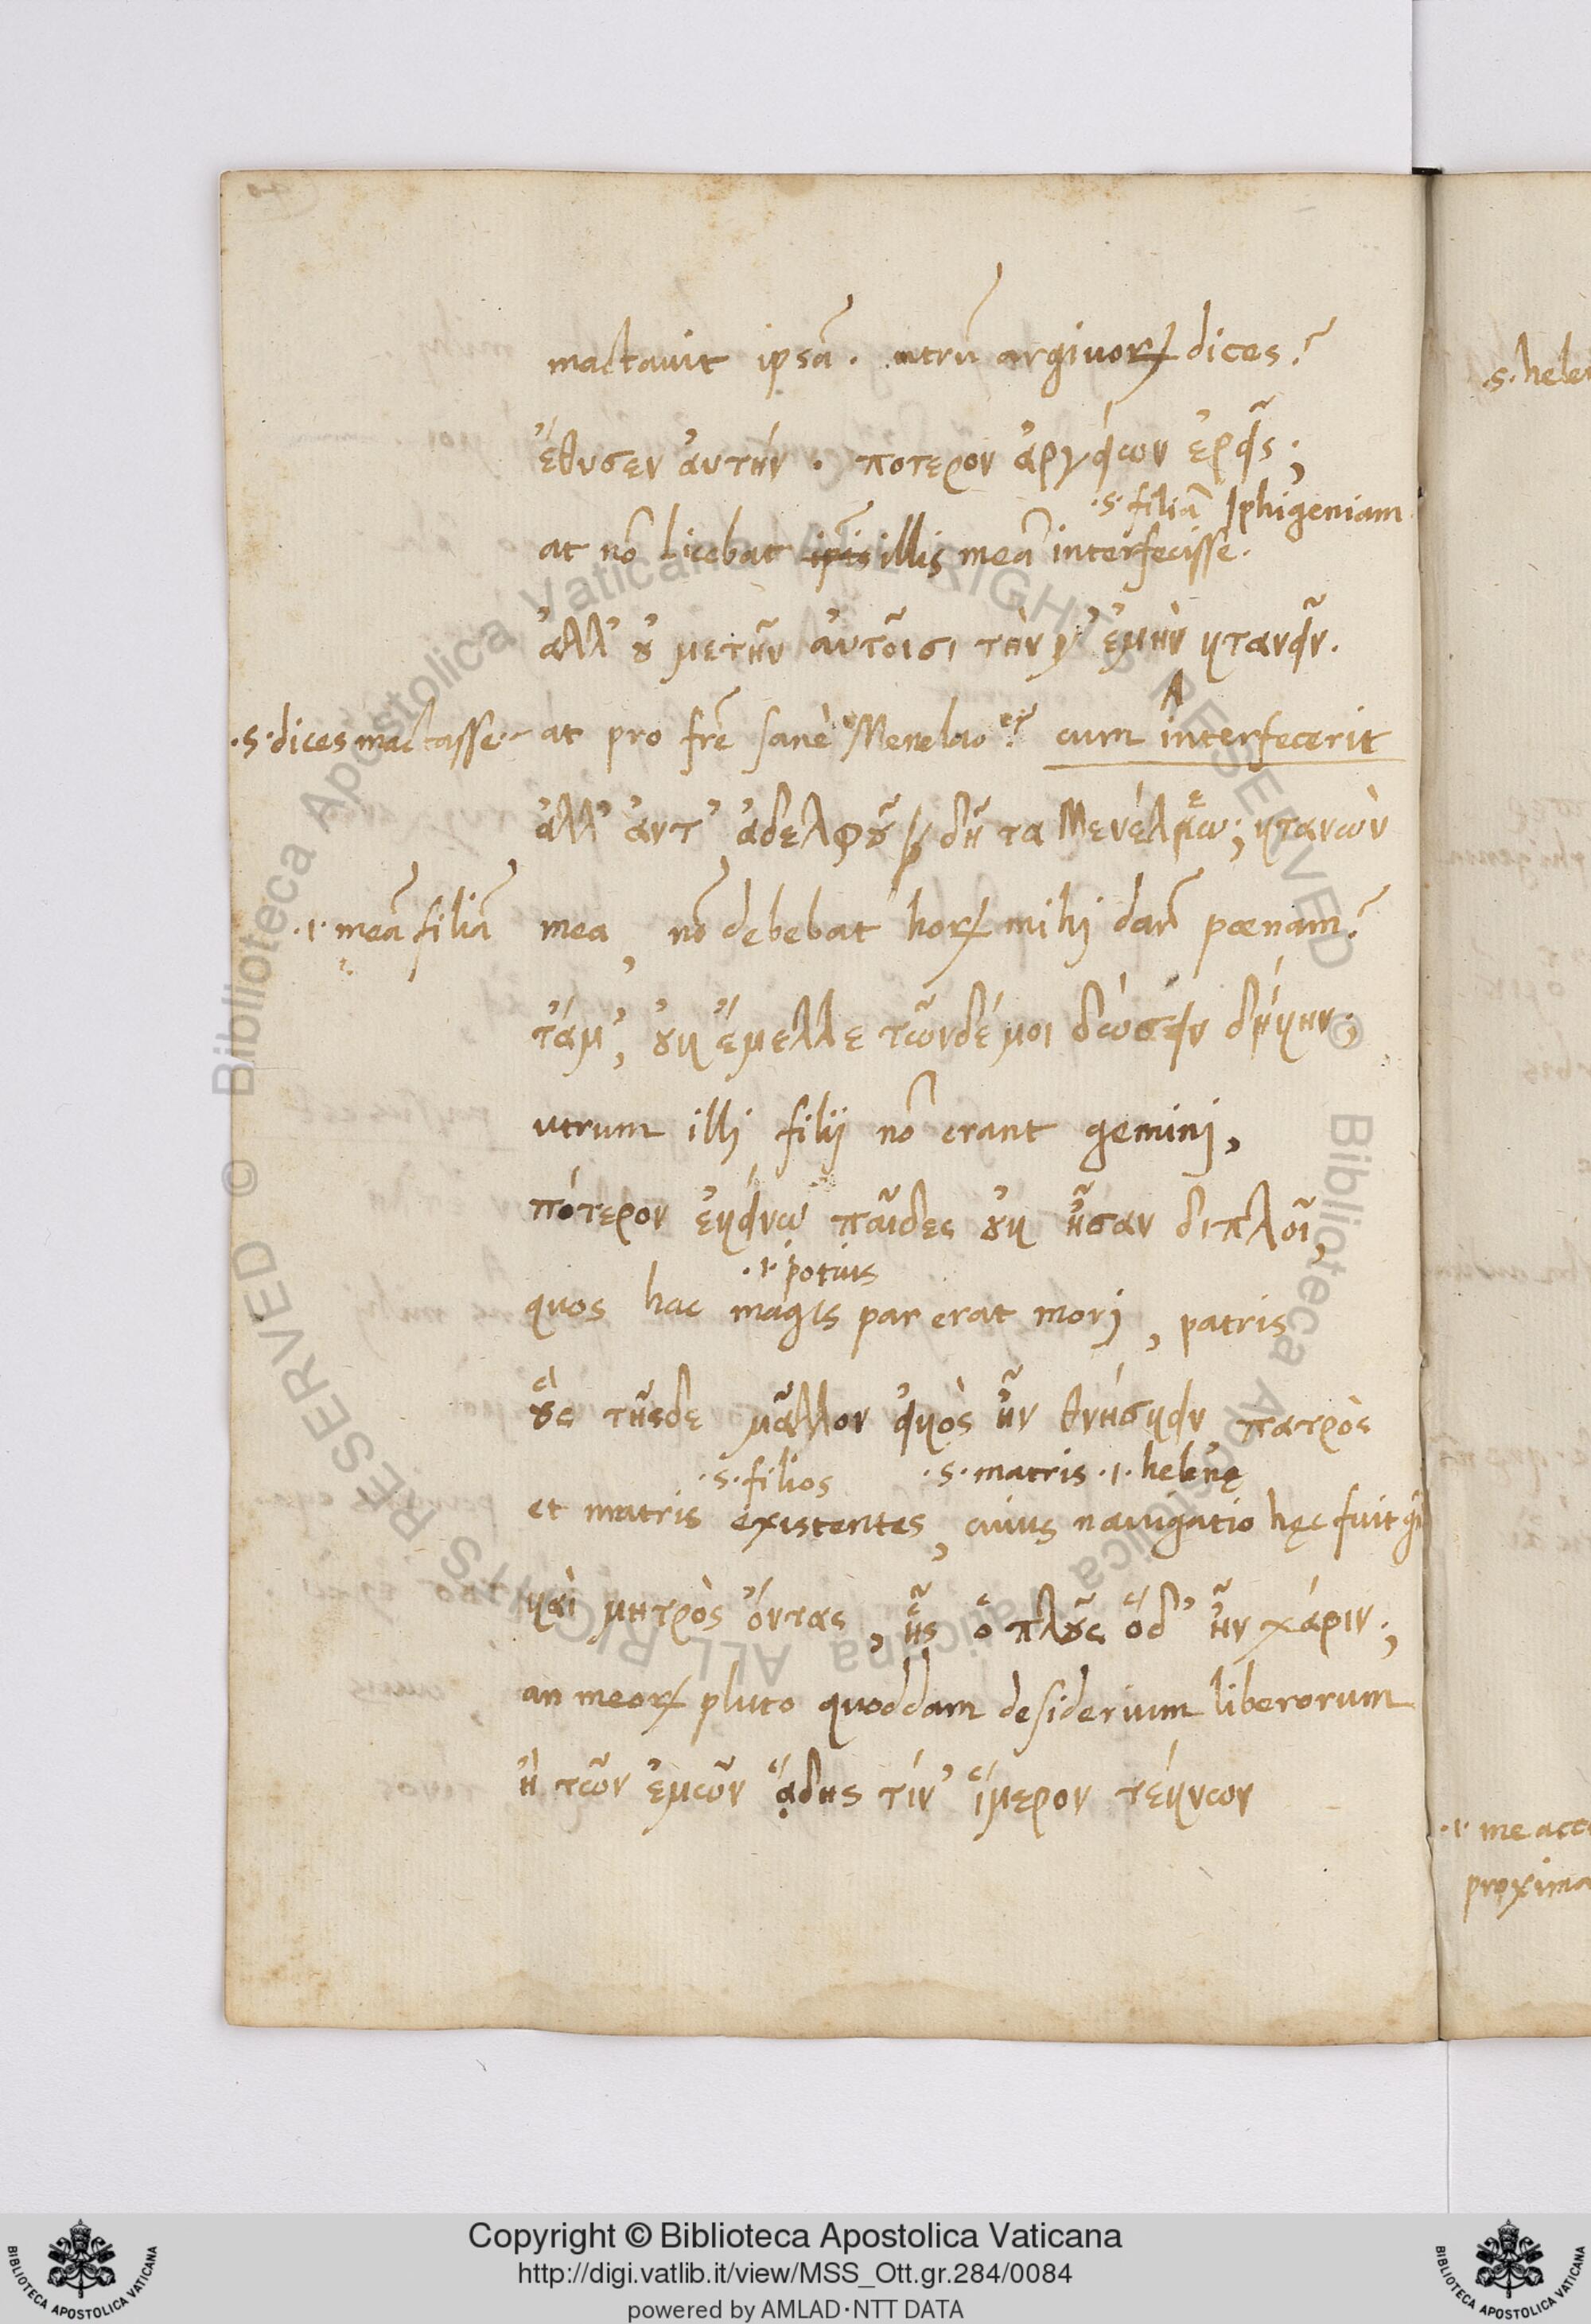 mactauit ipsã. utrũ argiuoꝝ dices?
ἔθυσεν ἀυτήν. ποτερον ἀργείων ἐρεῖς;
.s. filiã Iphigeniam
at nõ licebat ip̃is illis meã interfecisse.
ἀλλ' ȣ̓ μετῆν ἀυτοῖσι τὴν γ' ἐμὴν κτανεῖν.
.s. dices mactasse. at pro frẽ sanè Menelao? cum interfecerit
ἀλλ' ἀντ' ἀδελφȣ͂ δῆτα Μενέλεω; κτανὼν
.i. meã filiã mea, nõ debebat hoꝝ mihi darẽ pœnam?
τἄμ', ȣ̓κ ἔμελλε τῶνδέ μοι δώσειν δήκην;
utrum illi filij nõ erant gemini,
πότερον ἐκείνω παῖδες ȣ̓κ ἦσαν διπλοῖ,
.i. potius
quos hac magis par erat mori, patris
ȣ̔̀ς τῆςδε μᾶλλον εἰκὸς ἦν θνήσκειν πατρὸς
.s. filios .s. matris .i. helenę
et matris existentes, cuius nauigatio hęc fuit
καὶ μητρὸς ὄντας, ἧς ὁ πλȣ͂ς ὅδ' ἦν χάριν;
an meoꝝ pluto quoddam desiderium liberorum
ἢ τῶν ἐμῶν ᾅδης τίν' ἵμερον τέκνων
.s. hele
.i. me acc
proxima
Copyright © Biblioteca Apostolica Vaticana
http://digi.vatlib.it/view/MSS_Ott.gr.284/0084
powered by AMLAD·NTT DATA
BIBLIOTECA APOSTOLICA VATICANA
BIBLIOTECA APOSTOLICA VATICANA
© Biblioteca Apostolica Vaticana ALL RIGHTS RESERVED
© Biblioteca Apostolica Vaticana ALL RIGHTS RESERVED